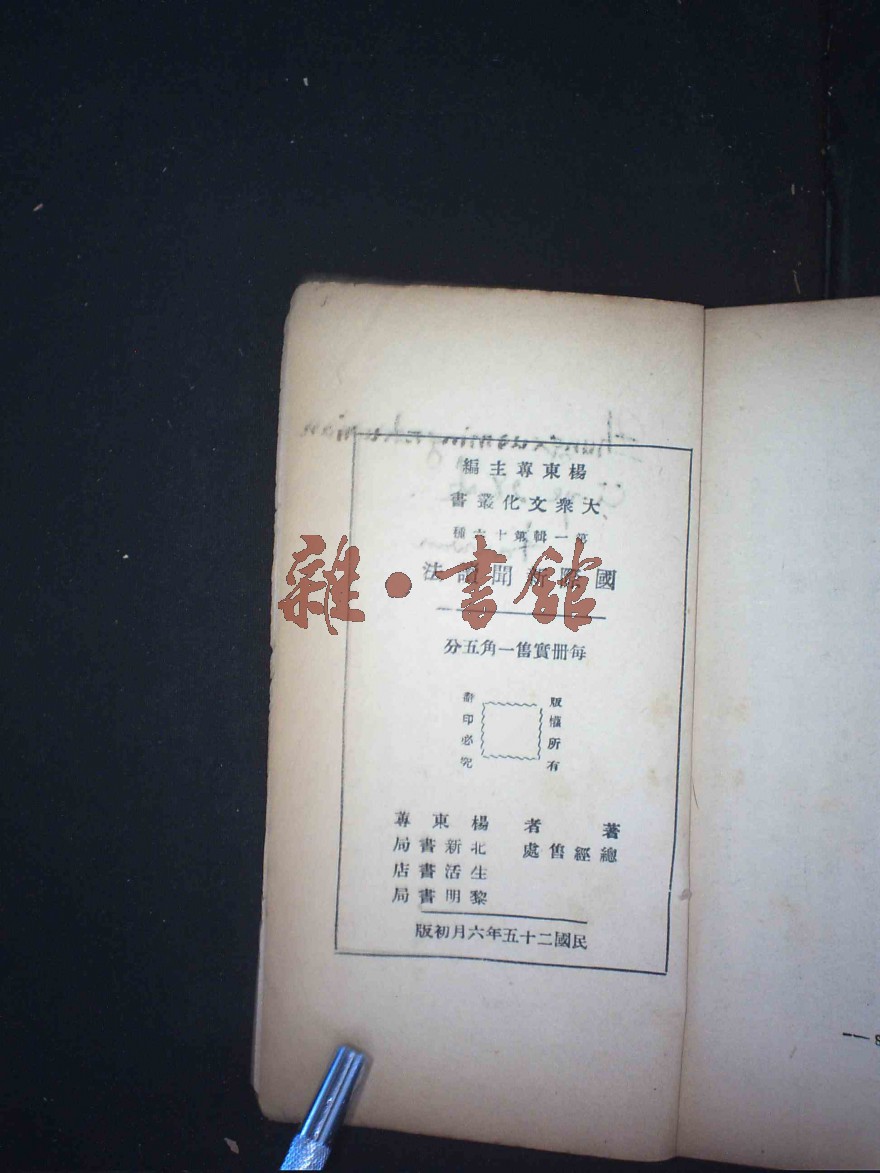 楊東蓴主編
大衆文化叢書
第一輯第十六種
國際新聞讀法
每册實售一角五分
版權所有
翻印必究
著者 楊東蓴
總經售處 北新書局
生活書店
黎明書局
民國二十五年六月初版
雜·書館